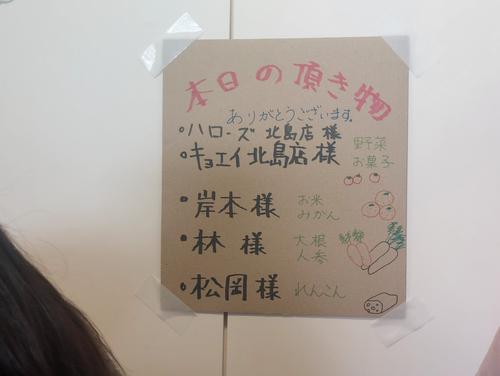 本日の頂き物
ありがとうございます。
・ハローズ 北島店 様
・キョエイ北島店様
野菜
お菓子
・岸本様
お米
みかん
・林 様
大根
人参
・松岡様
れんこん